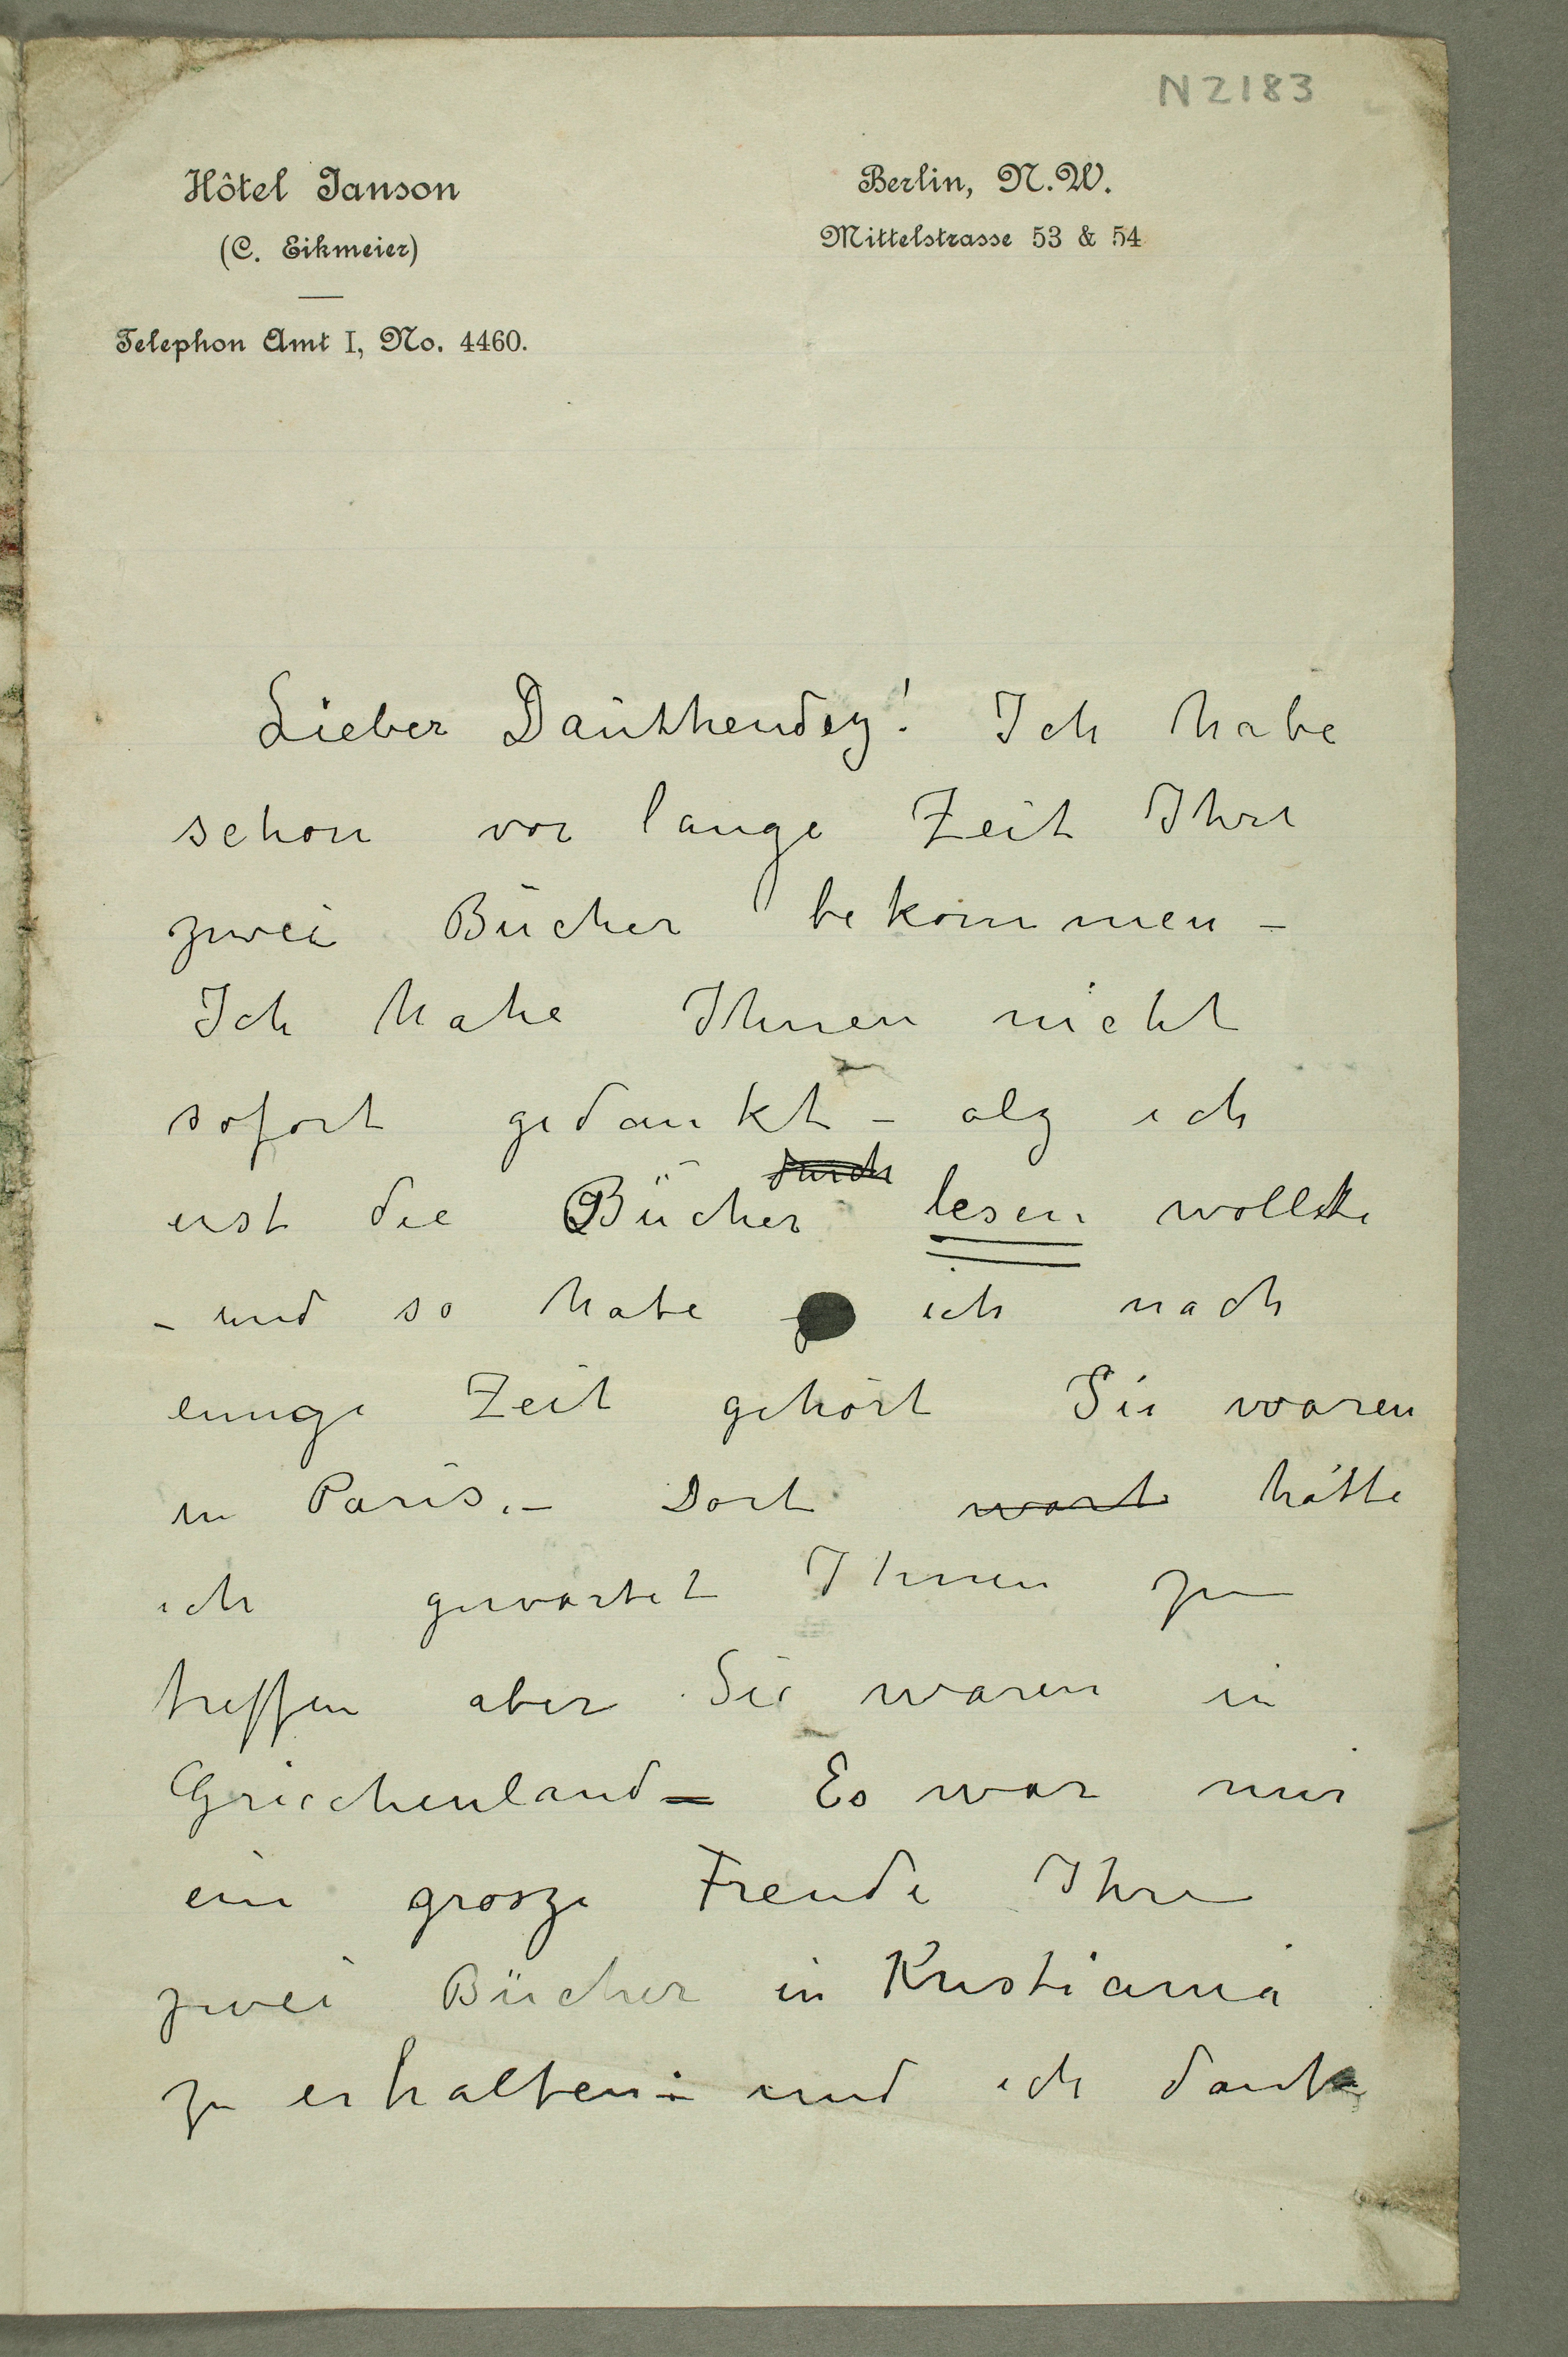 N 2183
Hôtel Janson
Berlin, N.W.
(C. Eikmeier)
Mittelstrasse 53 & 54
Telephon Amt I, No. 4460.
Lieber Dauthendey! Ich habe
schon vor lange Zeit Ihre
zwei Bücher bekommen –
Ich habe Ihnen nicht
sofort gedankt – alz ich
erst die Bücher durch lesen wollte
– und so habe ich nach
einige Zeit gehört Sie waren
in Paris. – Dort wart hätte
ich gewartet Ihnen zu
treffen aber Sie waren in
Griechenland – Es war mir
ein grosze Freude Ihre
zwei Bücher in Kristiania
zu erhalten – und ich danke